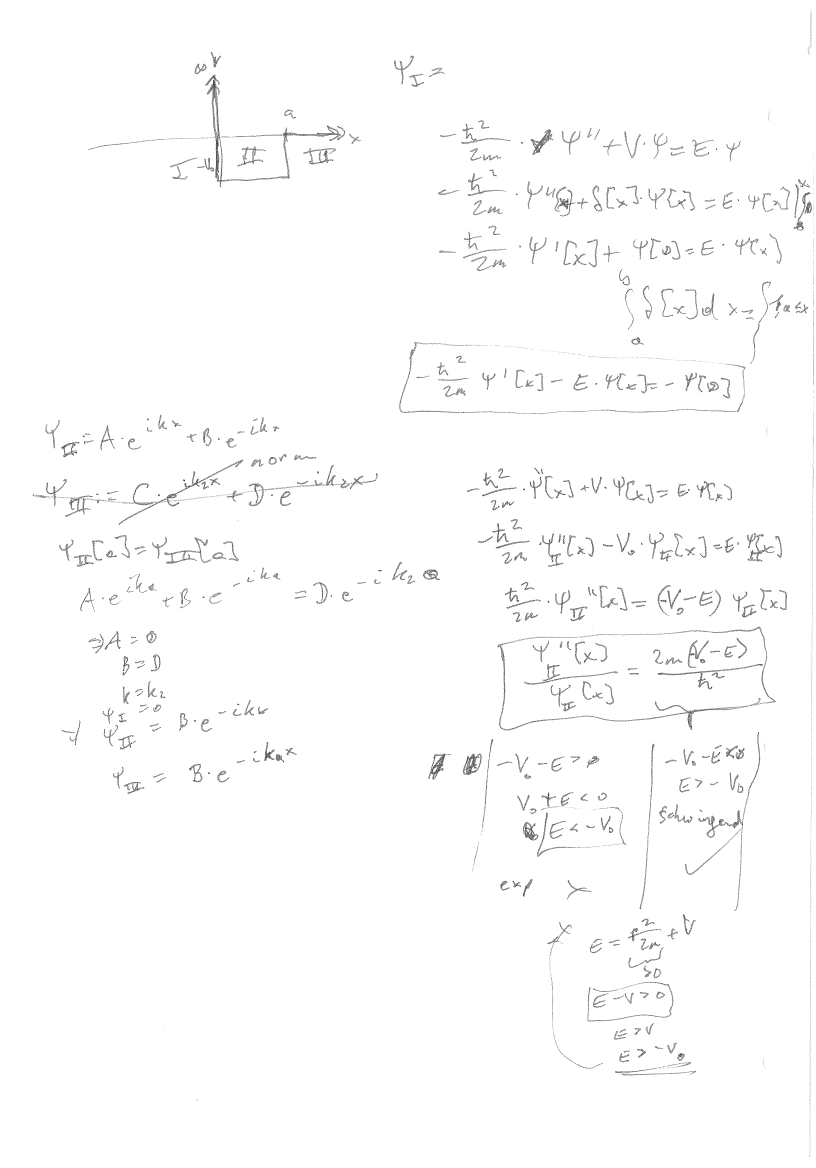 ∞ V
a
x
I -V₀ II III
Ψ_I =
-ħ²/2m · Ψ'' + V·Ψ = E·Ψ
-ħ²/2m · Ψ'' + δ[x]·Ψ[x] = E·Ψ[x]
-ħ²/2m · Ψ'[x] + Ψ[0] = E·Ψ[x]
∫_a^b δ[x] dx =
-ħ²/2m Ψ'[x] - E·Ψ[x] = -Ψ[0]
Ψ_II = A·e^{ikx} + B·e^{-ikx}
norm
Ψ_III = C·e^{ik₂x} + D·e^{-ik₂x}
Ψ_II[a] = Ψ_III[a]
A·e^{ika} + B·e^{-ika} = D·e^{-ik₂a}
⇒ A = 0
B = D
k = k₂
Ψ_I = 0
⇒ Ψ_II = B·e^{-ikx}
Ψ_III = B·e^{-ik₂x}
-ħ²/2m · Ψ''[x] + V·Ψ[x] = E·Ψ[x]
-ħ²/2m · Ψ_II''[x] - V₀·Ψ_II[x] = E·Ψ_II[x]
ħ²/2m · Ψ_II''[x] = (-V₀-E) Ψ_II[x]
Ψ_II''[x]/Ψ_II[x] = 2m(-V₀-E)/ħ²
-V₀-E > 0
V₀+E < 0
E < -V₀
exp
-V₀-E < 0
E > -V₀
schwingend
E = p²/2m + V
>0
E-V > 0
E > V
E > -V₀